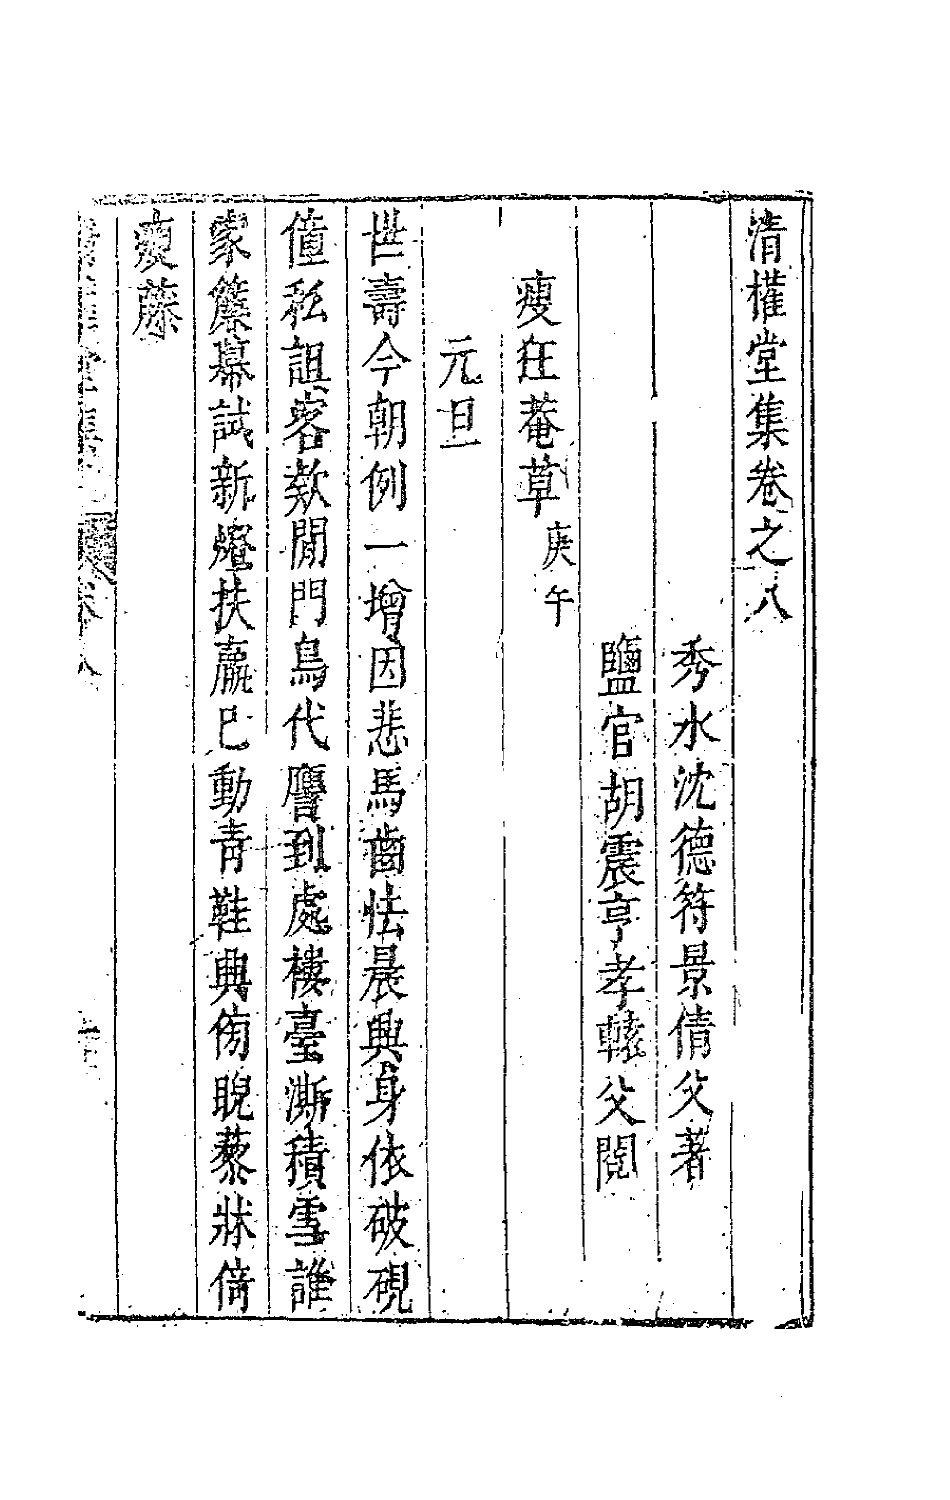 清權堂集卷之八
秀水沈德符景倩父著
鹽官胡震亨孝轅父閱
瘦狂菴草庚午
元旦
世壽今朝例一增因悲馬齒怯晨興身依破硯
僮私詛客款閒門鳥代譍到處樓臺澌積雪誰
家簾幕試新燈扶羸已動青鞋典傍睨藜牀倚
瘦藤